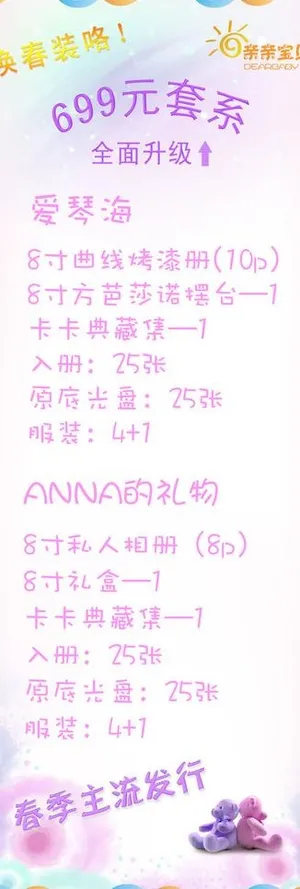 换春装咯！
亲亲宝贝
DEARBABY
699元套系
全面升级
爱琴海
8寸曲线烤漆册(10p)
8寸方芭莎诺摆台—1
卡卡典藏集—1
入册：25张
原底光盘：25张
服装：4+1
ANNA的礼物
8寸私人相册（8p）
8寸礼盒—1
卡卡典藏集—1
入册：25张
原底光盘：25张
服装：4+1
春季主流发行